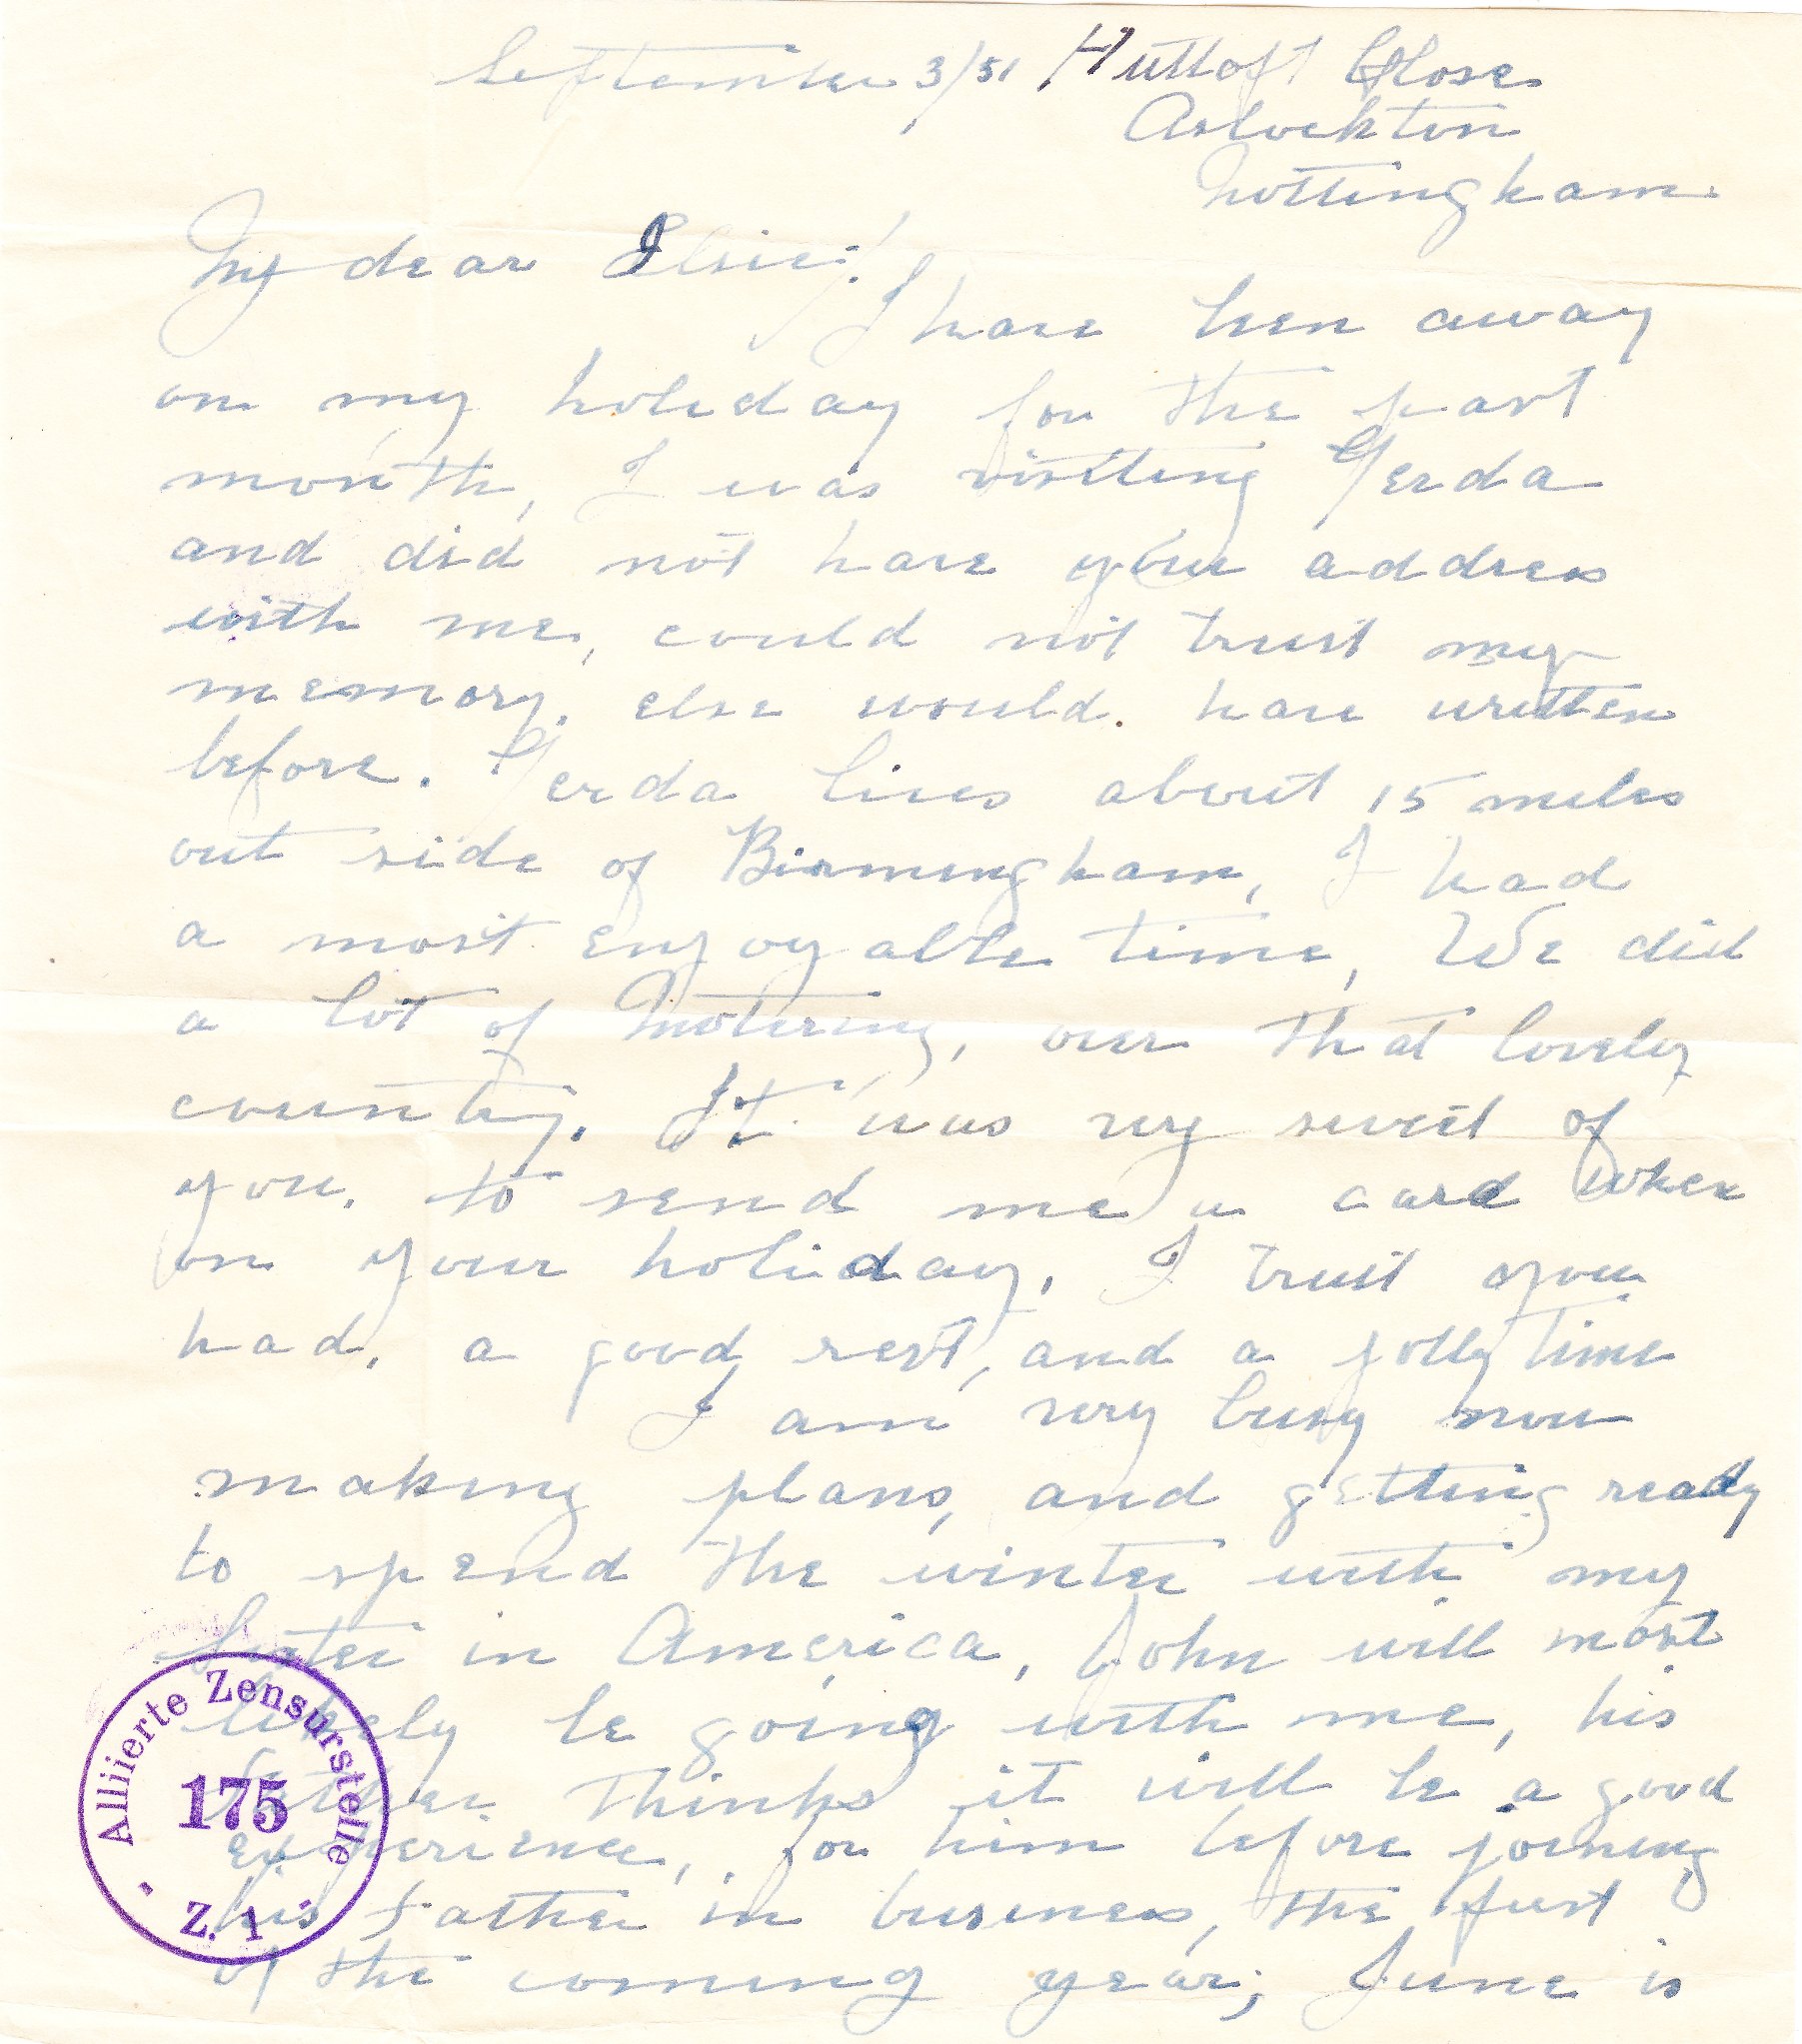 September 3/51 Huttoft Close
Aslockton
Nottingham.
My dear Elsie!
I have been away
on my holiday for the past
month, I was visiting Gerda
and did not have your address
with me, could not trust my
memory, else would. have written
before. Gerda lives about 15 miles
out side of Birmingham, I had
a most enjoyable time, We did
a lot of Motering, over that lovely
country. It was very sweet of
you, to send me a card when
on your holiday, I trust you
had, a good rest, and a jolly time
I am very busy now
making plans, and getting ready
to spend the winter with my
Sister in America, John will most
likely be going with me, his
father thinks it will be a good
experience, for him before joining
his father in business, the first
of the coming year; June is
Alliierte Zensurstelle
175
Z. 1